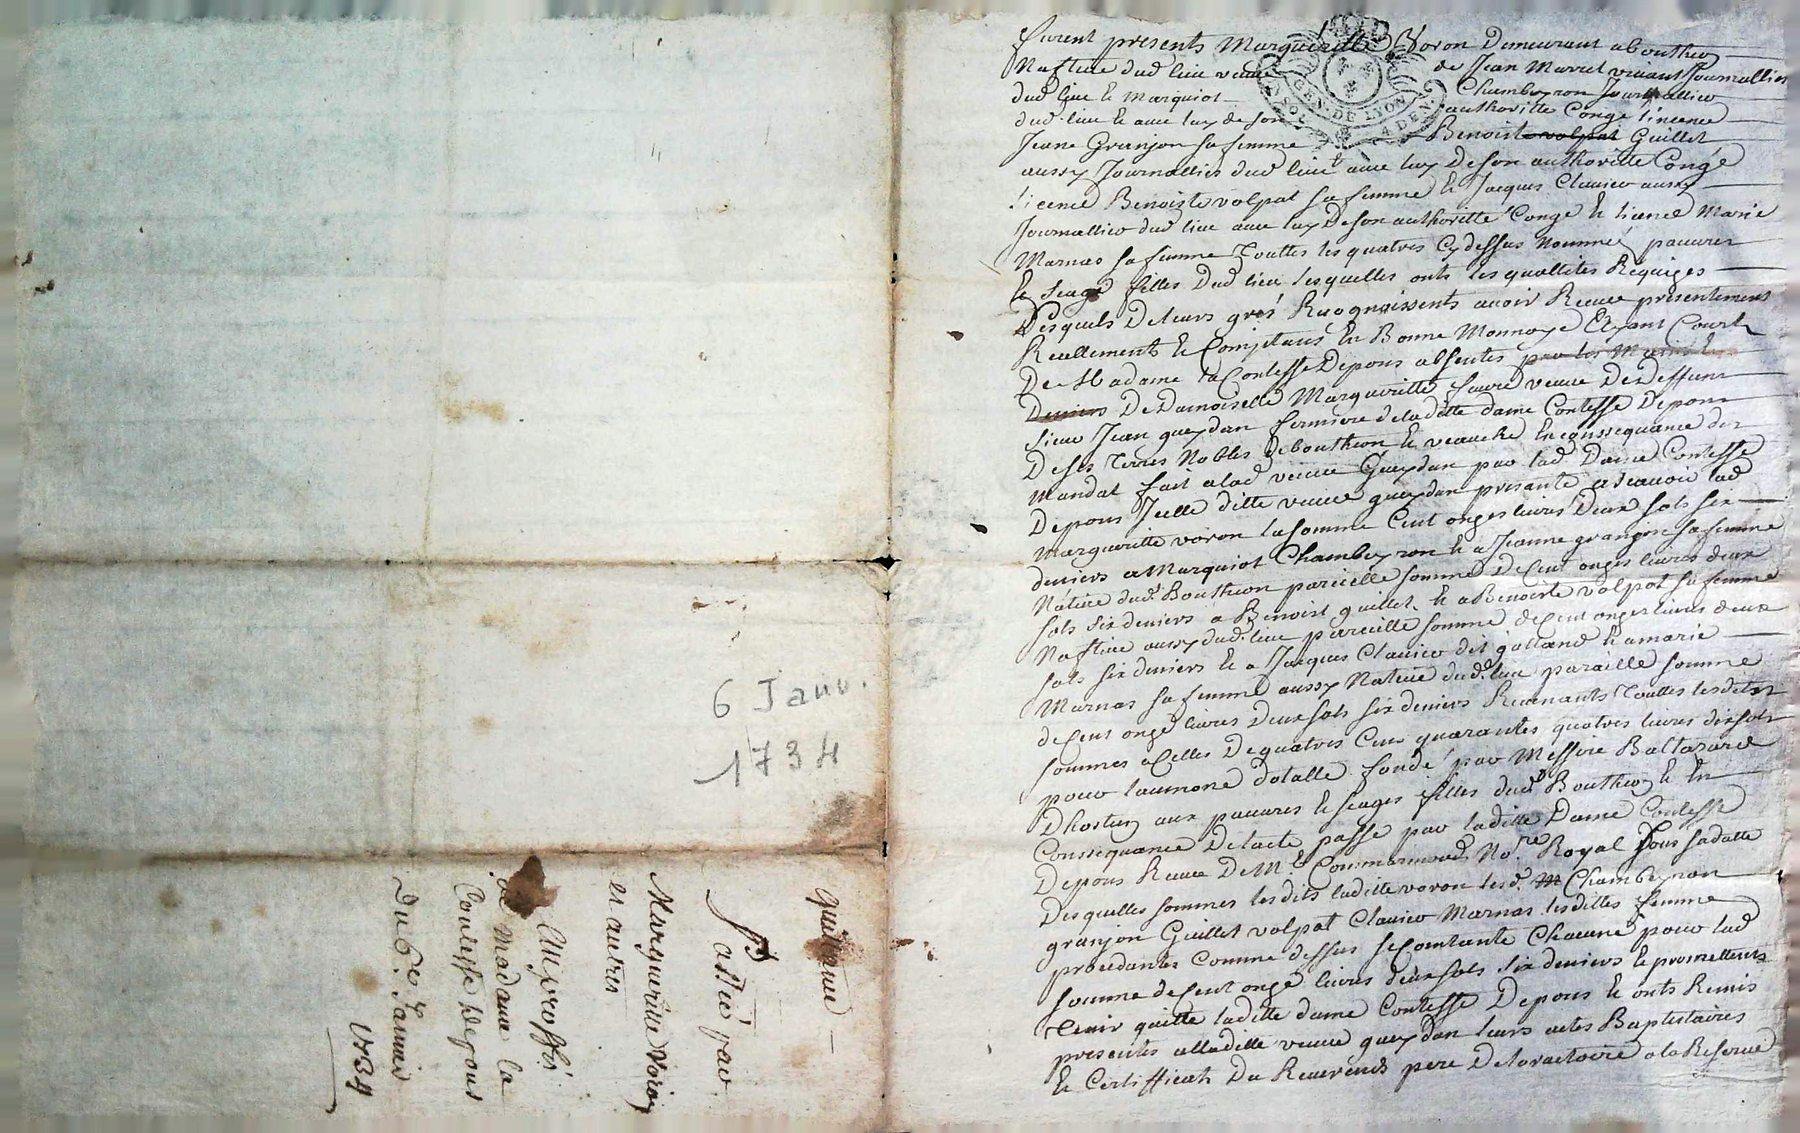 6 Janv.
1734
quittance
passé par
Margueritte Voron
et autres
Au proffit
de Madame la
Contesse Depons
Du 6e. Janvier
1734
GEN. DE LYON
4 DEN.
furent presents Margueritte Voron Demeurant a bouthéon
Nattive dud lieu veuve de Jean Marret vivant Journallier
dud lieu et Marquiot Chambeyron Journallier
dud lieu et avec luy de son authoritte Congé Licence
Jeane Granjon sa femme Benoist volpat Guillet
aussy Journallier dud lieu et avec luy De son authoritte Congé
licence Benoiste volpat sa femme et Jacques Clavier aussy
Journallier dud lieu avec luy De son authoritte Congé et licence Marie
Marnas sa femme Touttes les quatres Cy dessus Nommé pauvres
et sages filles Dud lieu lesquelles onts les quallites Requizes
Desquels De leurs gres Recognoissents avoir Receu presentement
Reellements et Comptans En Bonne Monnoye Etant Court
De Madame la Contesse Depons absentes par les Mains et
Deniers De Damoiselle Margueritte faure veuve De Deffunt
sieur Jean queydan fermiere de la ditte dame Contesse Depons
De ses Terres Nobles De bouthéon et veauche En conssequance des
Mandat fait a lad veuve Gueydan par lad Dame Contesse
Depons Icelle ditte veuve queydan presante a scavoir lad
Margueritte voron la somme Cent onzes livres Deux sols six
deniers a Marquiot Chambeyron et a Jeanne granjon sa femme
Nátive dud. Bouthéon pareielle somme De Cent onzes livres deux
sols six deniers a Benoist guillet et a Benoiste volpat sa femme
Nattive aussy dud. lieu pareille somme de Cent onzes livres deux
sols six deniers et a Jacques Clavier dit gollaud et a marie
Marnas sa femme aussy Native dud. lieu paraille somme
de Cent onze livres Deux sols six deniers Revenants Touttes lesdittes
sommes a Celles De quatres Cens quarantes quatres livres dix sols
pour laumone dotalle fondé par Messire Baltazard
Dhostun aux pauvres et sages filles dud Bouthéon et En
Conssequance De lacte passe par la ditte Dame Contesse
Depons Receu De Me. Commarmond No.re Royal Sous sa datte
Desquelles sommes lesdits laditte voron lesd. M Chambeyron
granjon Guillet volpat Clavier Marnas lesdittes femme
procedantes Comme dessus se Contante Chacune pour lad
somme de Cent onze livres deux sols six deniers et promettents
Tenir quitte laditte dame Contesse Depons et onts Remis
presentes alladitte veuve queydan leurs actes Baptistaires
et Certifficats Du Reverends pere De loractoire a la Reserve